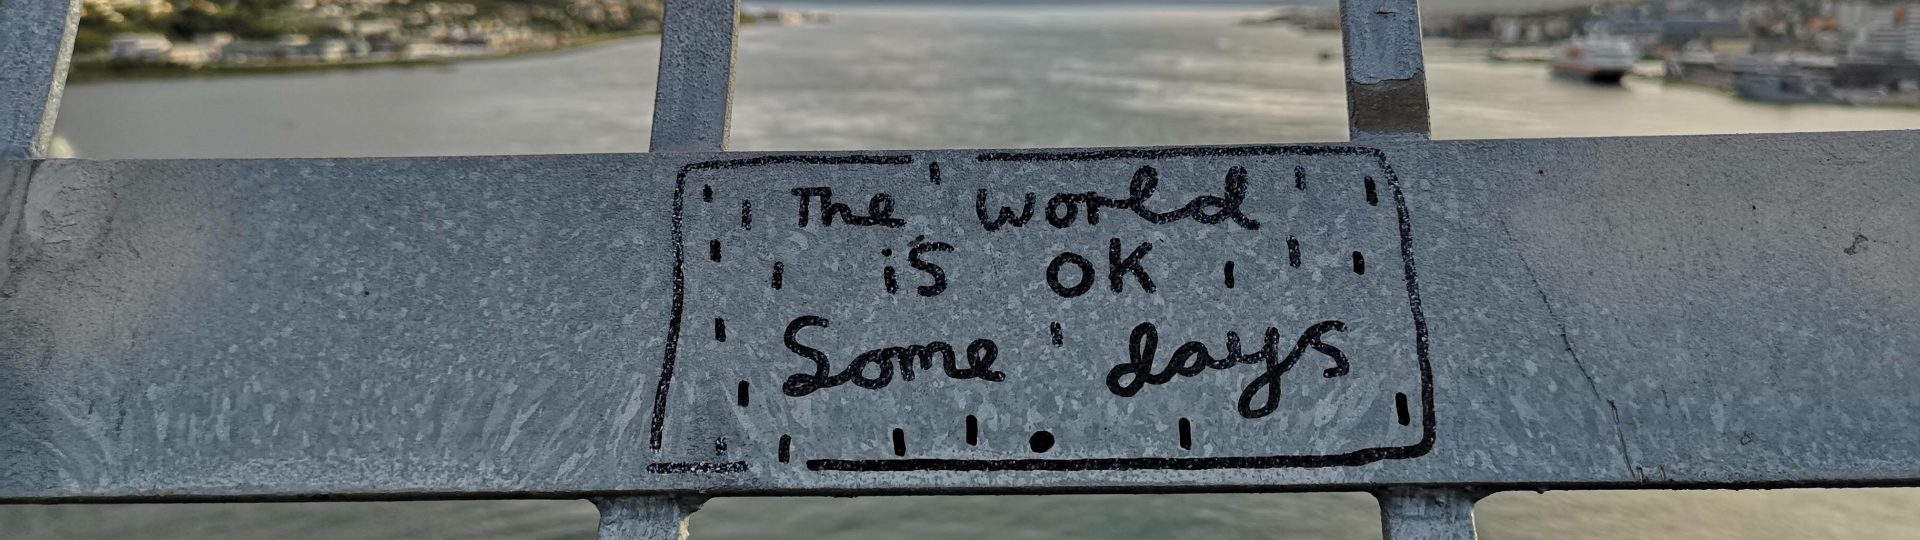 The world
is OK
Some days